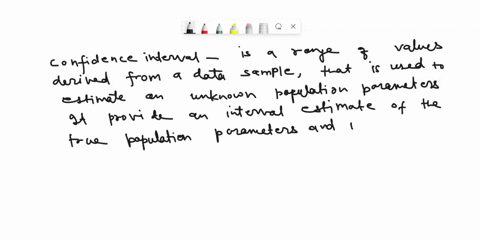 confidence interval - is a range of values
derived from a data sample, that is used to
estimate an unknown population parameters
It provide an interval estimate of the
true population parameters and I